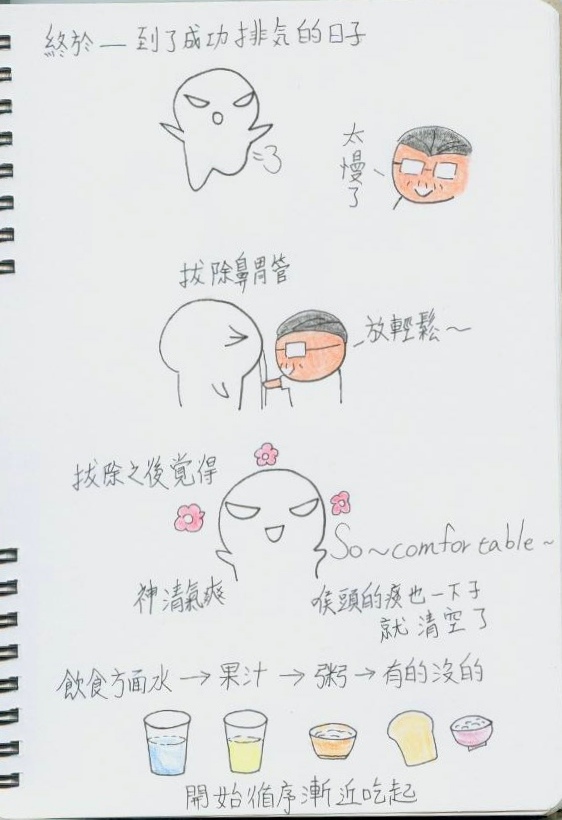 終於一 到了成功排気的日子
太慢了
拔除鼻胃管
放輕鬆～
拔除之後覚得
So～comfortable～
神清氣爽
喉頭的痰也一下子
就清空了
飲食方面水→果汁→粥→有的沒的
開始循序漸近吃起